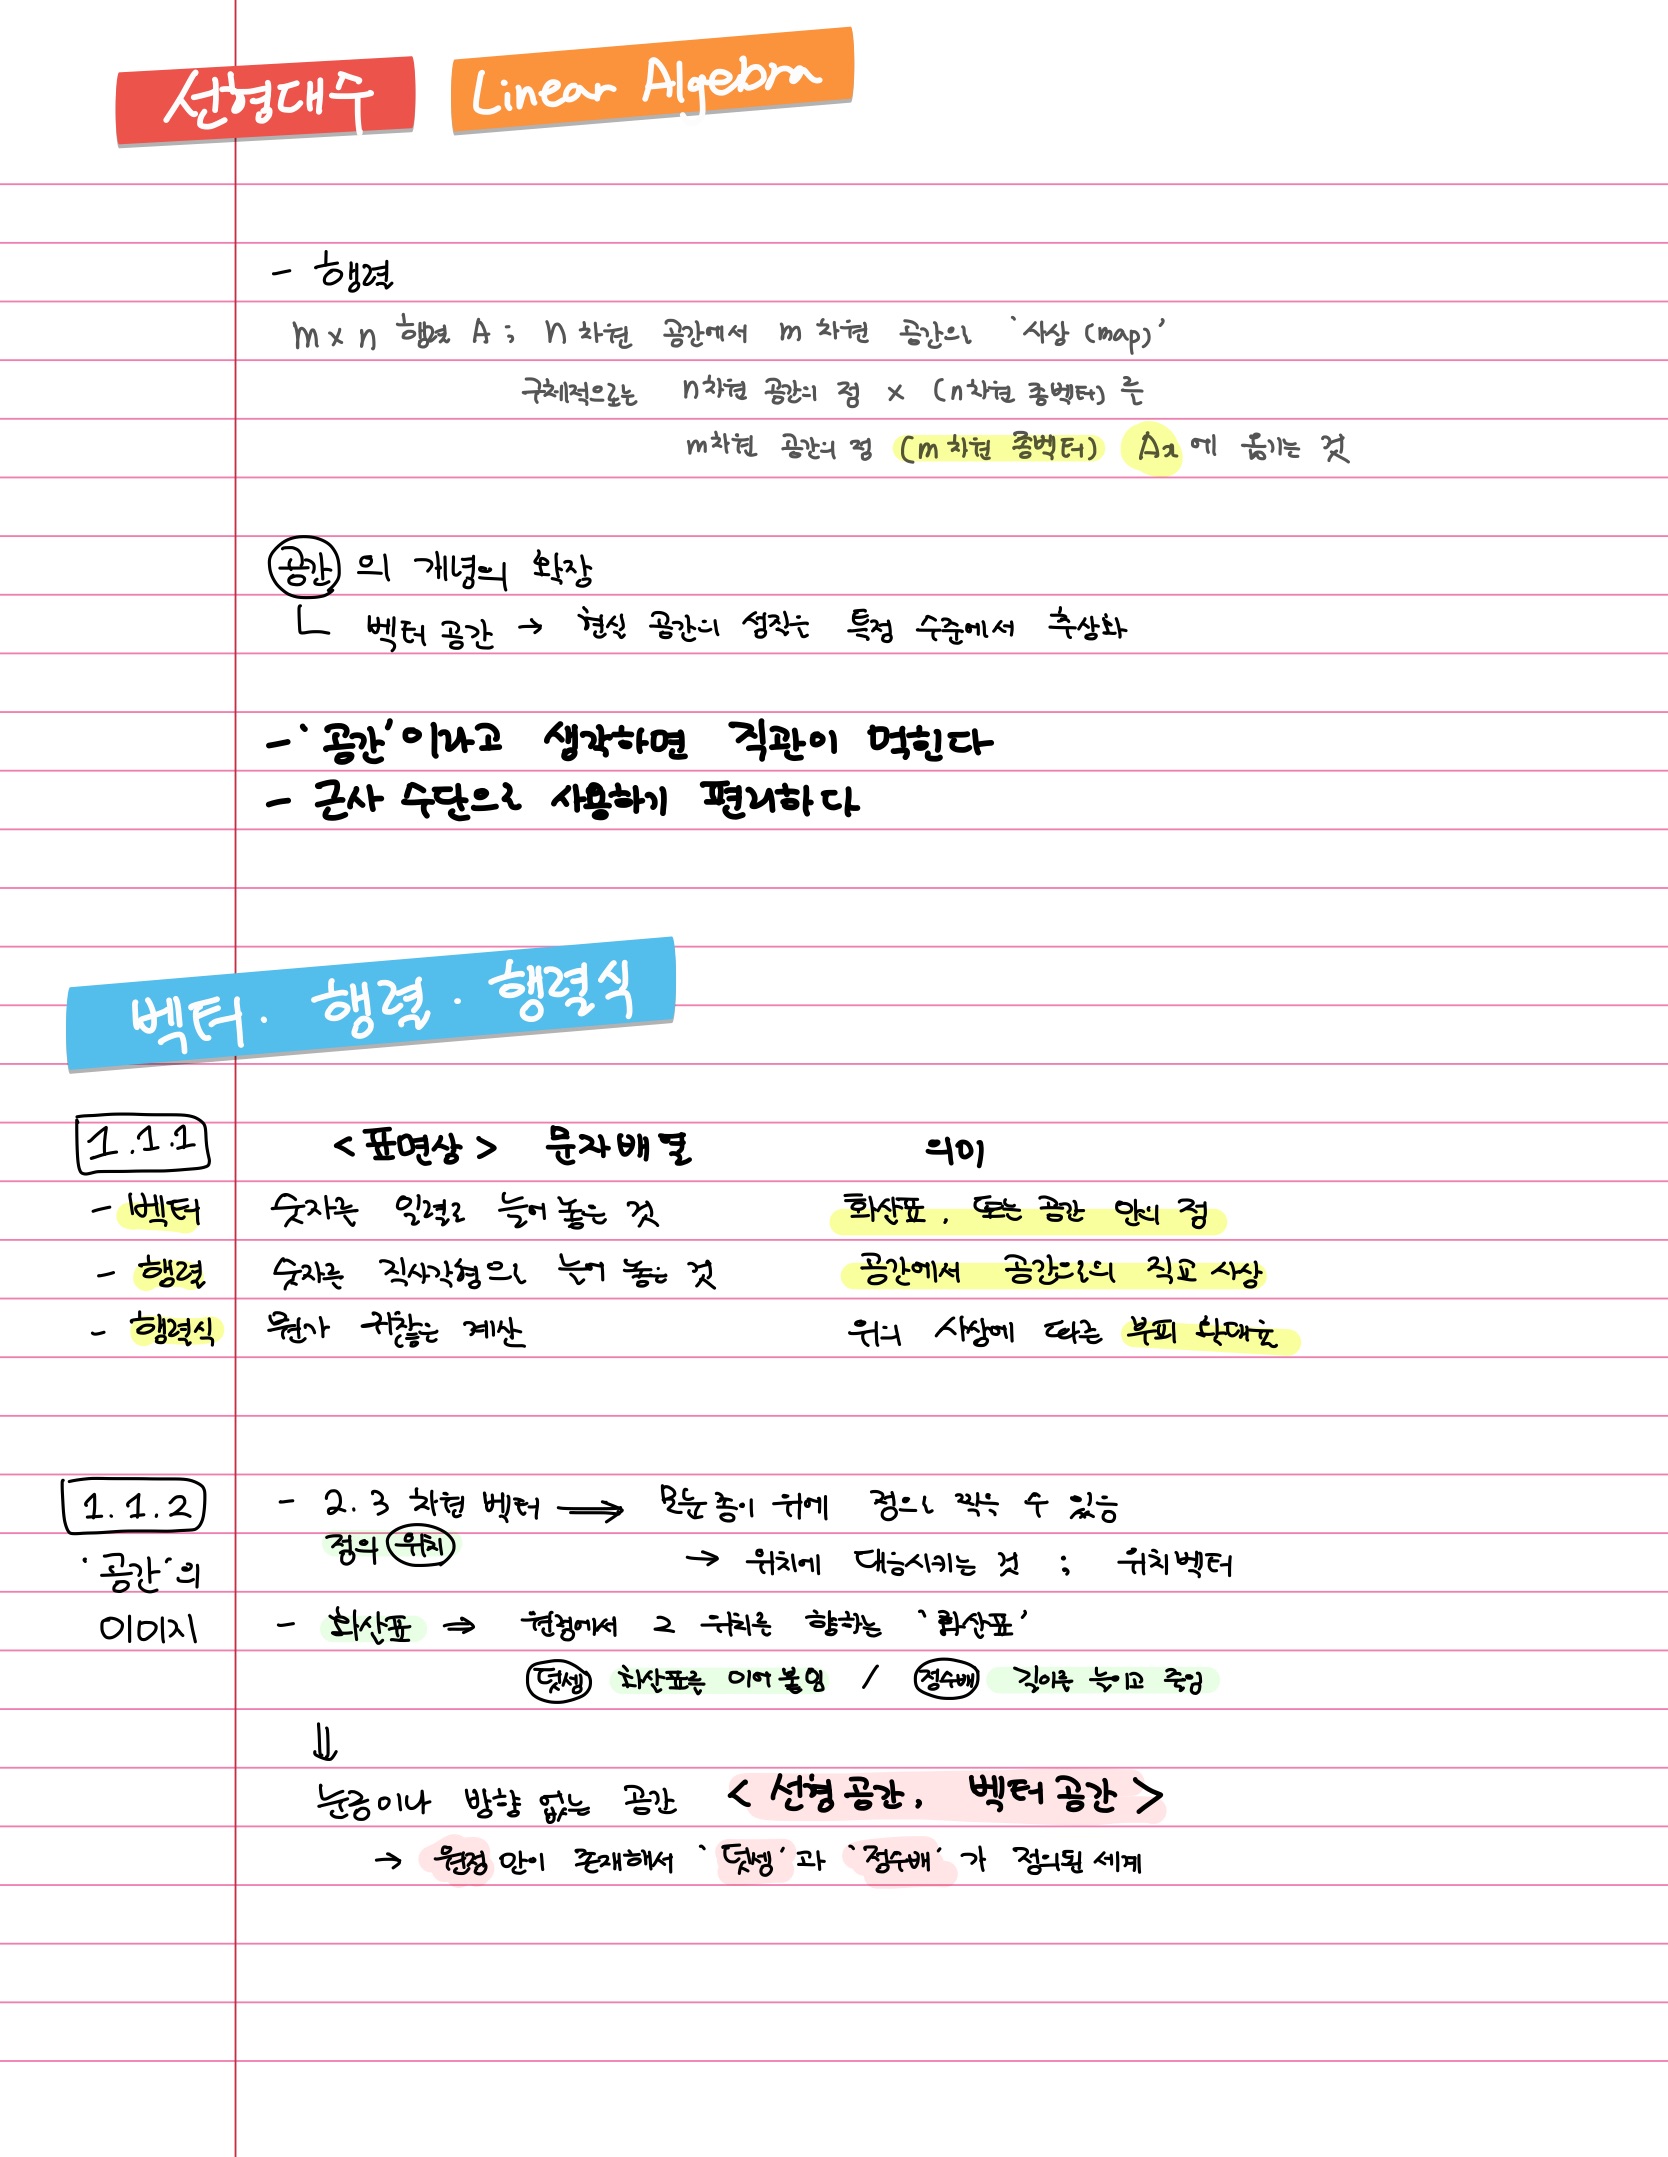 선형대수 Linear Algebra
- 행렬
m x n 행렬 A ; n 차원 공간에서 m 차원 공간으로 '사상 (map)'
구체적으로는 n차원 공간의 점 x (n차원 종벡터) 를
m차원 공간의 점 (m 차원 종벡터) Ax 에 옮기는 것
공간 의 개념의 확장
벡터 공간 → 현실 공간의 성질은 특정 수준에서 추상화
- '공간'이라고 생각하면 직관이 먹힌다
- 근사 수단으로 사용하기 편리하다
벡터 · 행렬 · 행렬식
1.1.1 <표면상> 문자배열 의미
- 벡터 숫자를 일렬로 늘어 놓은 것 화살표, 또는 공간 안의 점
- 행렬 숫자를 직사각형으로 늘어 놓은 것 공간에서 공간으로의 직교 사상
- 행렬식 뭔가 귀찮은 계산 위의 사상에 따른 부피 확대율
1.1.2 - 2.3 차원 벡터 ⟹ 모눈종이 위에 점으로 찍을 수 있음
점의 위치
→ 위치에 대응시키는 것 ; 위치벡터
'공간'의
이미지 - 화살표 ⇒ 원점에서 그 위치를 향하는 '화살표'
덧셈 화살표를 이어 붙임 / 정수배 길이를 늘이고 줄임
⇓
눈금이나 방향 없는 공간 < 선형공간, 벡터공간 >
→ 원점 만이 존재해서 '덧셈'과 '정수배'가 정의된 세계